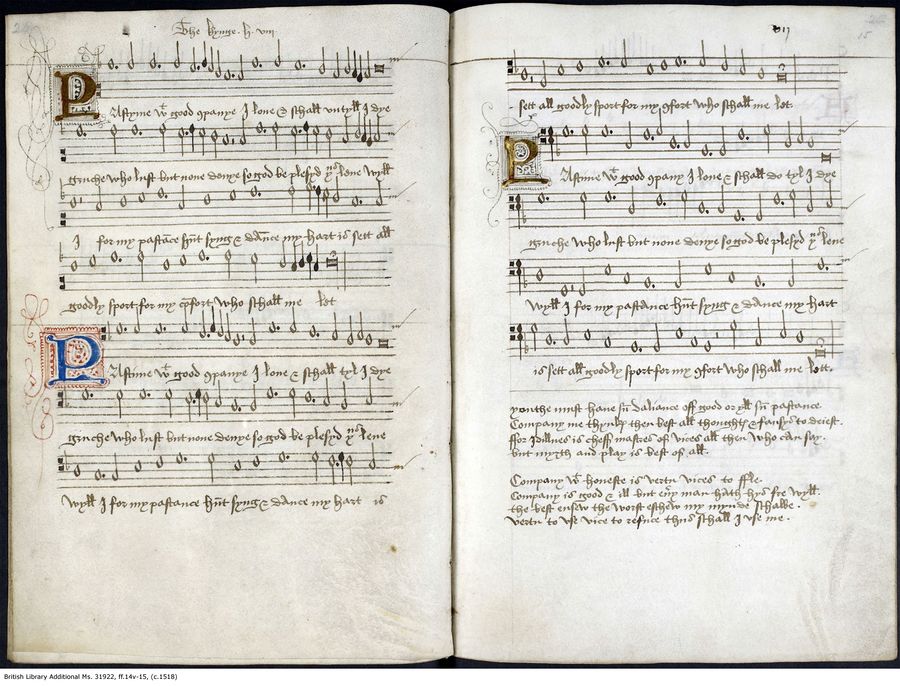 The kynge .h. viii.
PAstyme wt good 9panye I love & schall untyll I dye
gruche who lust but none denye so god be plesyd þus leve wyll
I for my pastāce hūt syng & dāce my hart is sett all
goodly sport for my cōfort who schall me let
PAstime wt good 9panye I love & schall tyl I dye
gruche who lust but none denye so god be plesyd þus leve
wyll I for my pastance hūt syng & dance my hart is
viii
15
sett all goodly sport for my 9fort who shall me let.
PAstime wt good 9pany I love & schall do tyl I dye
gruche who lust but none denye so god be plesyd þus leve
wyll I for my pastance hūt syng & dance my hart
is sett all goodly sport for my 9fort who shall me lett.
youthe must have sū daliance off good or yll sū pastance.
Company me thynks then best all thoughts & fansys to deiest.
ffor Idillnes is cheff mastres of vices all then who can say.
but myrth and play is best of all.
Company wt honeste is vertu vices to ffle.
Company is good & ill but evy man hath hys fre wyll.
the best ensew the worst eschew my mynde schalbe.
vertu to use vice to refuce thus schall I use me.
British Library Additional Ms. 31922, ff.14v-15, (c.1518)